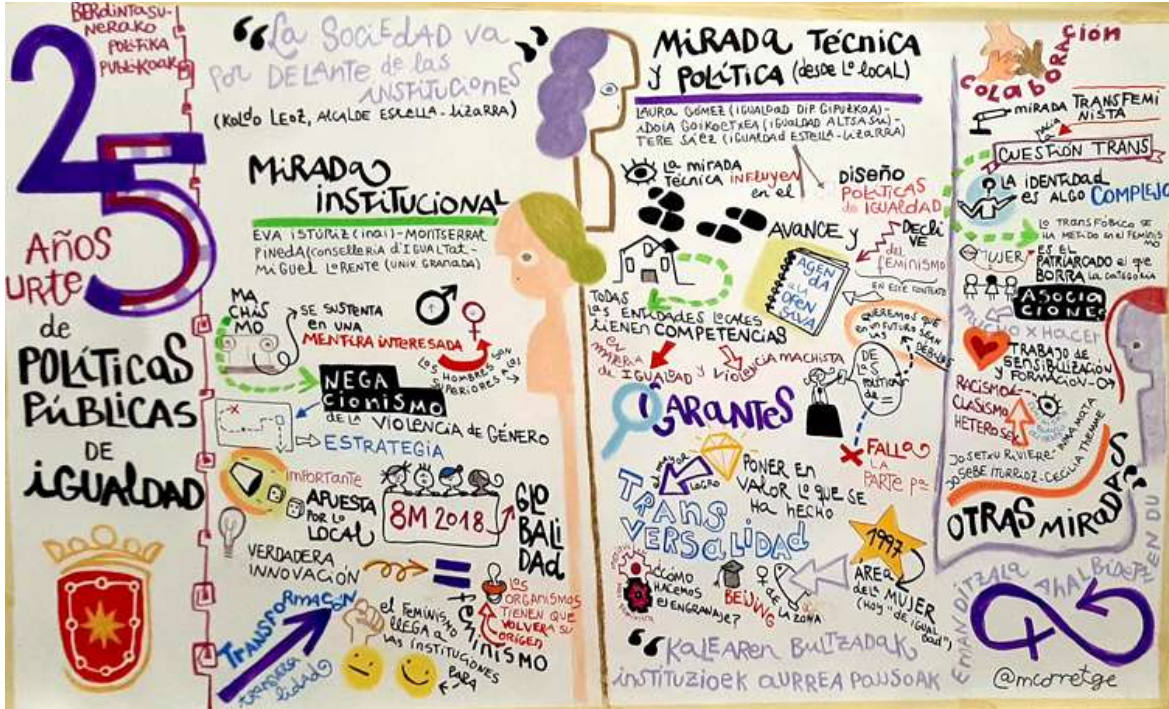 BERDINTASU-
NERAKO
POLITIKA
PUBLIKOAK
25
AÑOS
URTE
de
POLÍTICAS
PÚBLICAS
DE
iGUALDAD
“La SOCiEdAD va
por DELANTE de las
iNSTITUCIONES”
(KOLDO LEOZ, ALCALDE ESTELLA-LIZARRA)
MiRADA
iNSTITUCIONAL
EVA iSTÚRIZ (inai)-MONTSERRAT
PiNEDA (CONSELLERIA d'IGUALTAT-
MiGUEL LORENTE (UNIV. GRANADA)
MA
CHIS
MO
SE SUSTENTA
EN UNA
MENTIRA INTERESADA
LOS HOMBRES SON
SUPERIORES a las
NEGA
CIONISMO
DE LA VIOLENCIA DE GÉNERO
ESTRATEGIA
iMPORTANTE
APUESTA
POR LO
LOCAL
8M 2018
GLO
BALI
DAD
VERDADERA
INNOVACIÓN
TRANSFORMACIÓN
TRANSVERSA
LIDAD
el FEMINISMO
LLEGA a
LAS INSTITUCIONES
PARA
FEMINISMO
LOS
ORGANISMOS
TIENEN QUE
VOLVER A SU
ORIGEN
MiRADA TÉCNICA
y POLÍTICA (desde Lo LOCAL)
LAURA GÓMEZ (IGUALDAD DIP GIPUZKOA)-
iDOIA GOIKOETXEA (IGUALDAD ALTSASU)-
TERE SÁEZ (IGUALDAD ESTELLA-LIZARRA)
LA MIRADA
TÉCNICA INFLUYE
en el
DISEÑO
POLÍTICAS
de IGUALDAD
AVANCE y
DECLI
VE
del
FEMINISMO
EN ESTE CONTEXTO
AGEN
DA
a la
OFEN
SIVA
TODAS
LAS ENTIDADES LOCALES
TIENEN COMPETENCIAS
EN
MATERIA
de IGUALDAD y VIOLENCIA MACHISTA
QUEREMOS QUE
EN UN FUTURO SEAN
DE
LAS
GARANTES
FALLA
LA
PARTE
el MAYOR
LOGRO
PONER EN
VALOR LO QUE SE
HA HECHO
TRANS
VERSALIDAD
1997
AREA
de la MUJER
(HOY "DE IGUAL
DAD")
¿CÓMO
HACEMOS
EL ENGRANAJE?
BEIJING
DE LA ZONA
“KALEAREN BULTZADAK
iNSTITUZIOEK AURREA PAUSOAK
COLABORACIÓN
MIRADA TRANSFEMI
NISTA
HACIA
LA
CUESTIÓN TRANS
LA IDENTIDAD
ES ALGO COMPLEJO
LO TRANSFÓBICO SE
HA METIDO EN EL FEMINIS
MO
MUJER
ES EL
PATRIARCADO el QUE
BORRA LA CATEGORÍA
ASOCIA
CIONES
MUCHO X HACER
TRABAJO DE
SENSIBILIZACIÓN
y FORMACIÓN
RACISMO
CLASISMO
HETEROSEX
JOSETXU RIVIERE-
JOSEBE ITURRIOZ-CECILIA THEMME
OTRAS MIRADAS
EMAN DITZALA AHALBIDETZEN DU
@mcorretge